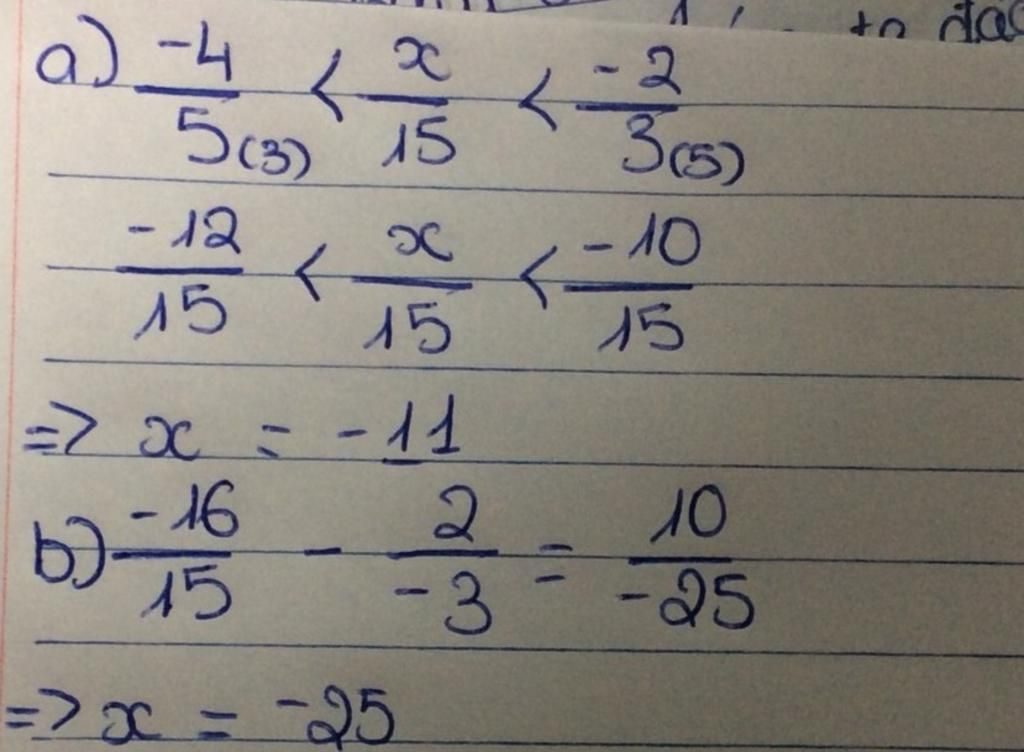 to
a) -4/5(3) < x/15 < -2/3(5)
-12/15 < x/15 < -10/15
=> x = -11
b) -16/15 - 2/-3 = 10/-25
=> x = -25